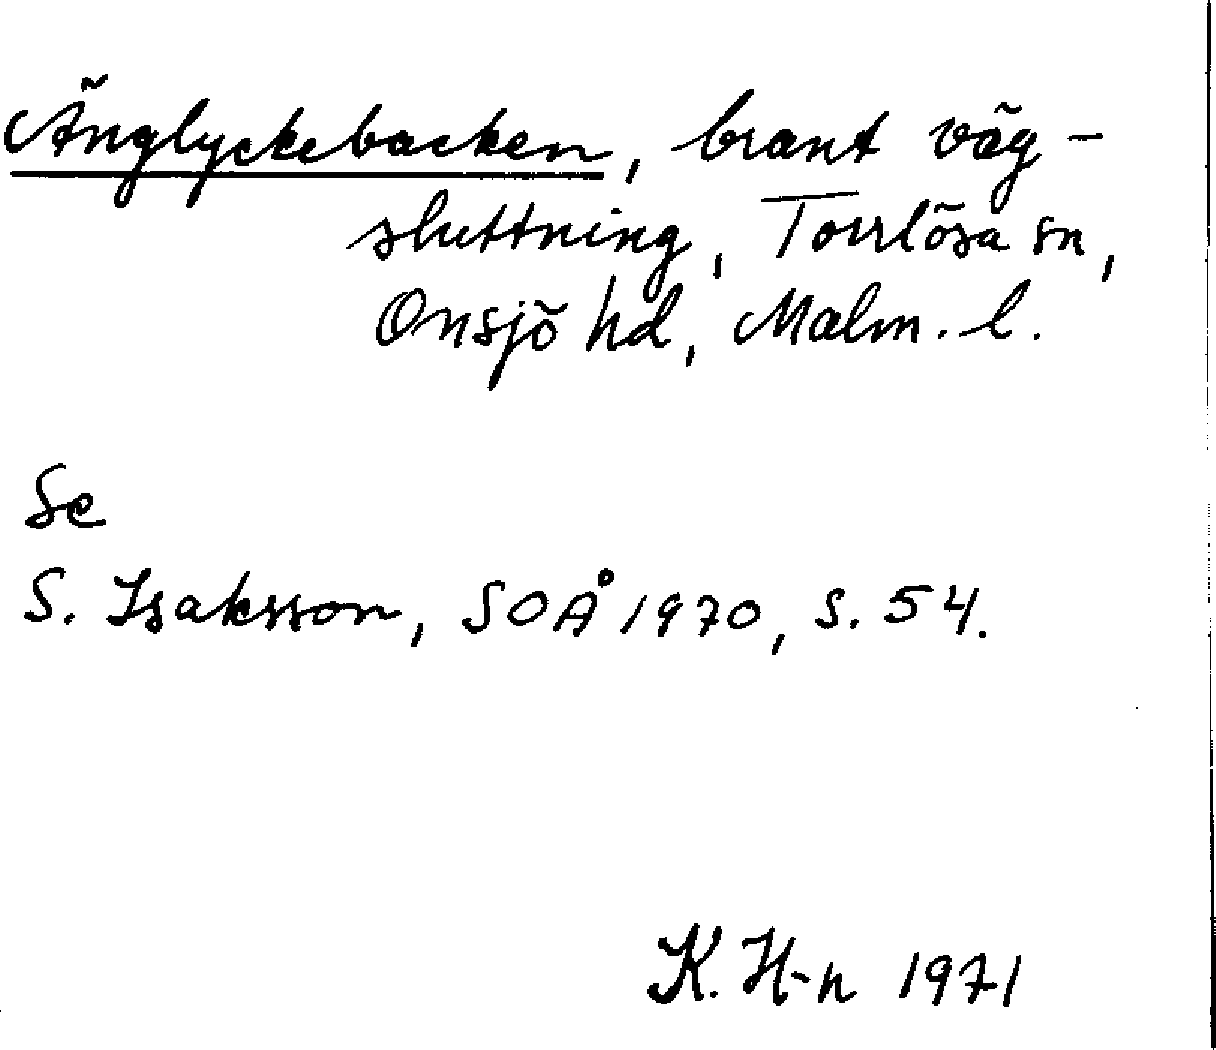 Änglyckebacken, brant väg-
sluttning, Torrlösa sn,
Onsjö hd, Malm. l.
Se
S. Isaksson, SOÅ 1970, s. 54.
K. H-n 1971